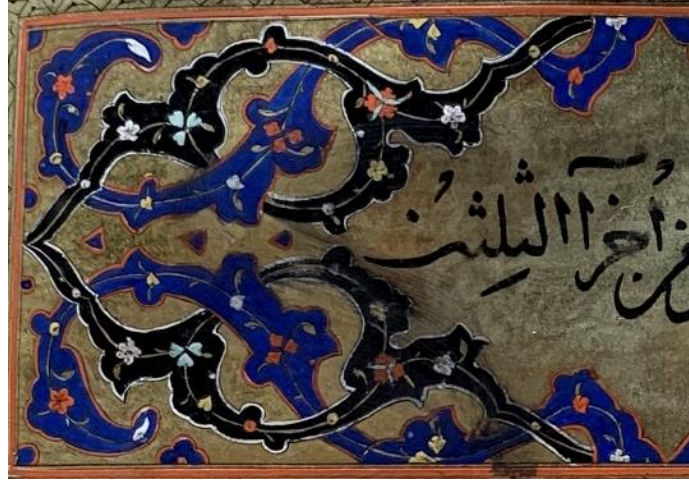 اجزآ الثلثين